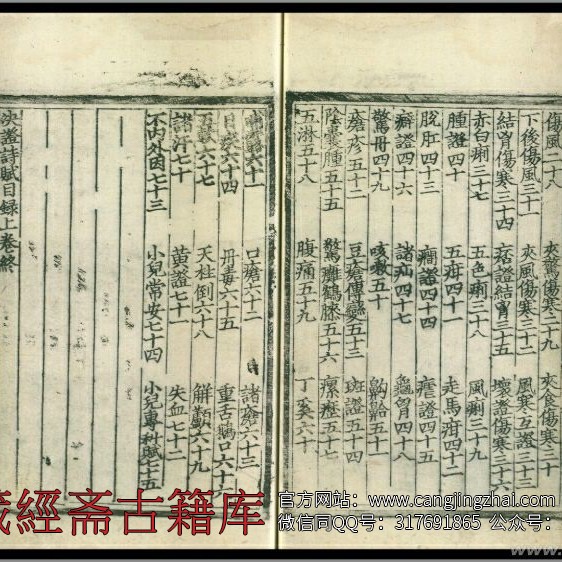 傷風二十八 夾驚傷寒二十九 夾食傷寒三十
下後傷風三十一 夾風傷寒三十二 風寒互證三十三
結胷傷寒三十四 痞證結胷三十五 壞證傷寒三十六
赤白痢三十七 五色痢三十八 風痢三十九
腫證四十 五疳四十一 走馬疳四十二
脫肛四十三 癇證四十四 瘧證四十五
癖證四十六 諸疝四十七 龜胷四十八
驚丹四十九 咳嗽五十 齁䶎五十一
瘡疹五十二 豆瘡傳變五十三 斑證五十四
陰囊腫五十五 鶴膝五十六 瘰癧五十七
五淋五十八 腹痛五十九 丁奚六十
六十一 口瘡六十二 諸瘡六十三
六十四 丹毒六十五 重舌鵝口六十六
六十七 天柱倒六十八 解顱六十九
諸汗七十 黃證七十一 失血七十二
不內外因七十三 小兒常安七十四 小兒專科賦七十五
決證詩賦目録上卷終
藏經斋古籍库
官方网站：www.cangjingzhai.com
微信同QQ号：317691865 公众号：